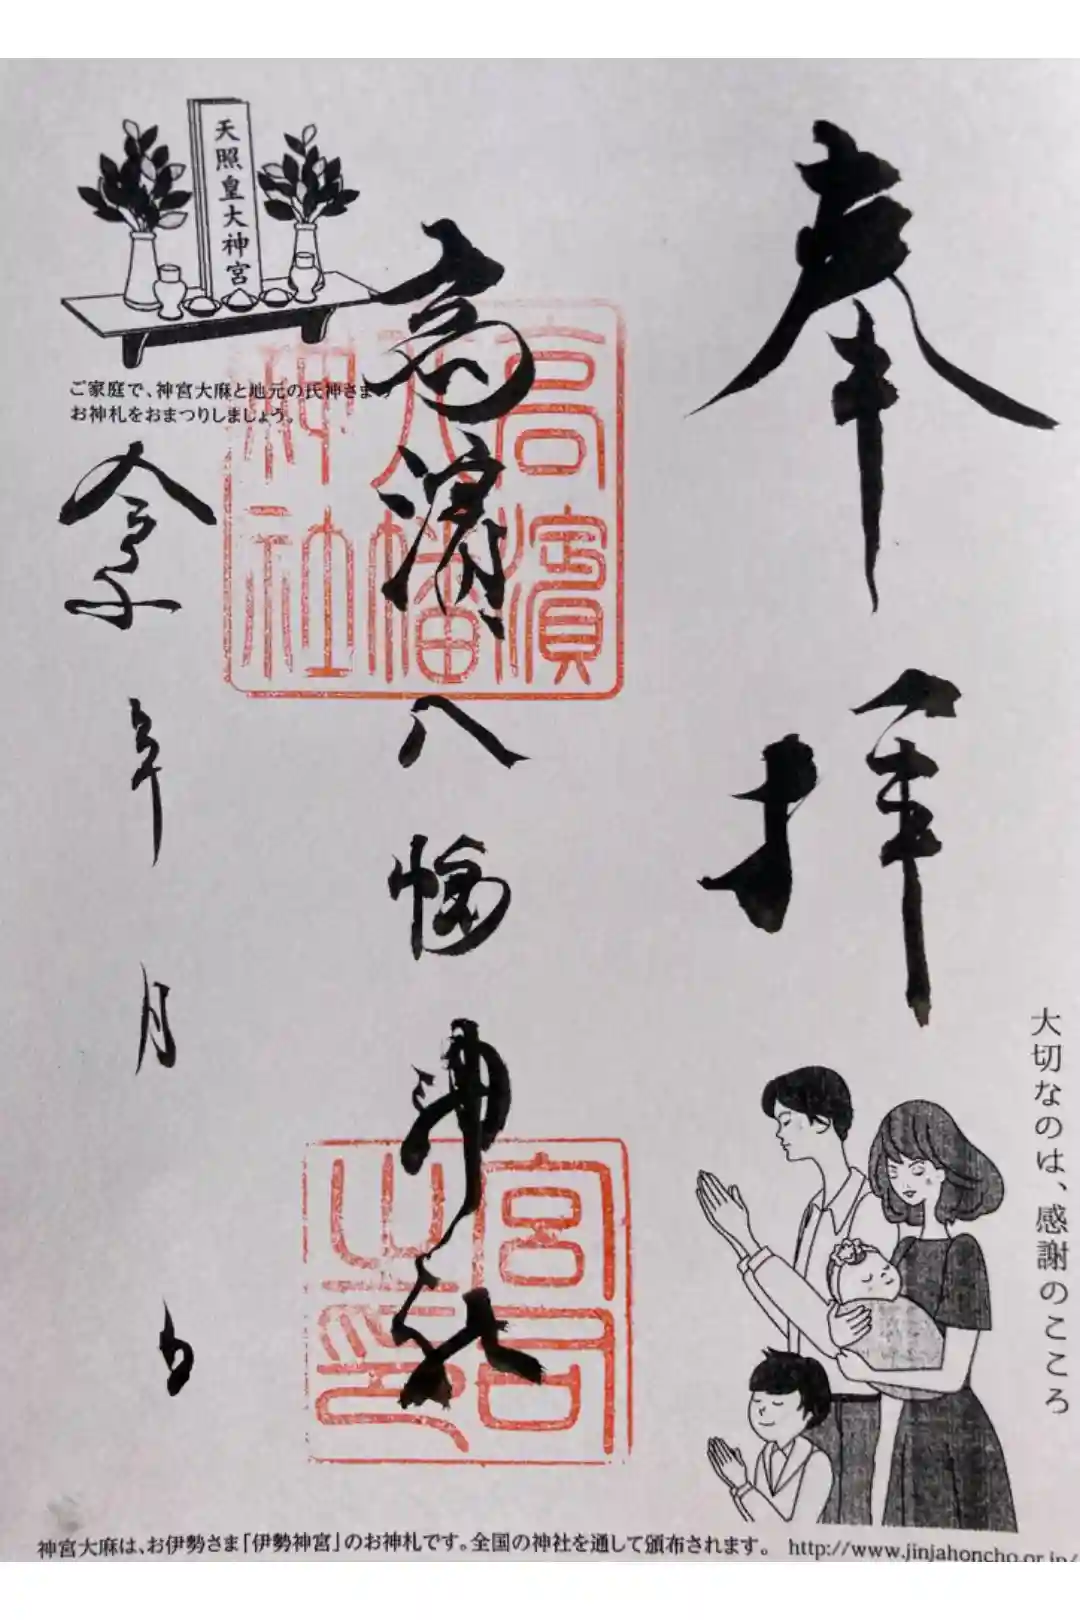 奉拝
大切なのは、感謝のこころ
高濱八幡神社
高濱八幡神社
宮司之印
天照皇大神宮
ご家庭で、神宮大麻と地元の氏神さまの
お神札をおまつりしましょう。
令和 年 月 日
神宮大麻は、お伊勢さま「伊勢神宮」のお神札です。全国の神社を通して頒布されます。 http://www.jinjahoncho.or.jp/